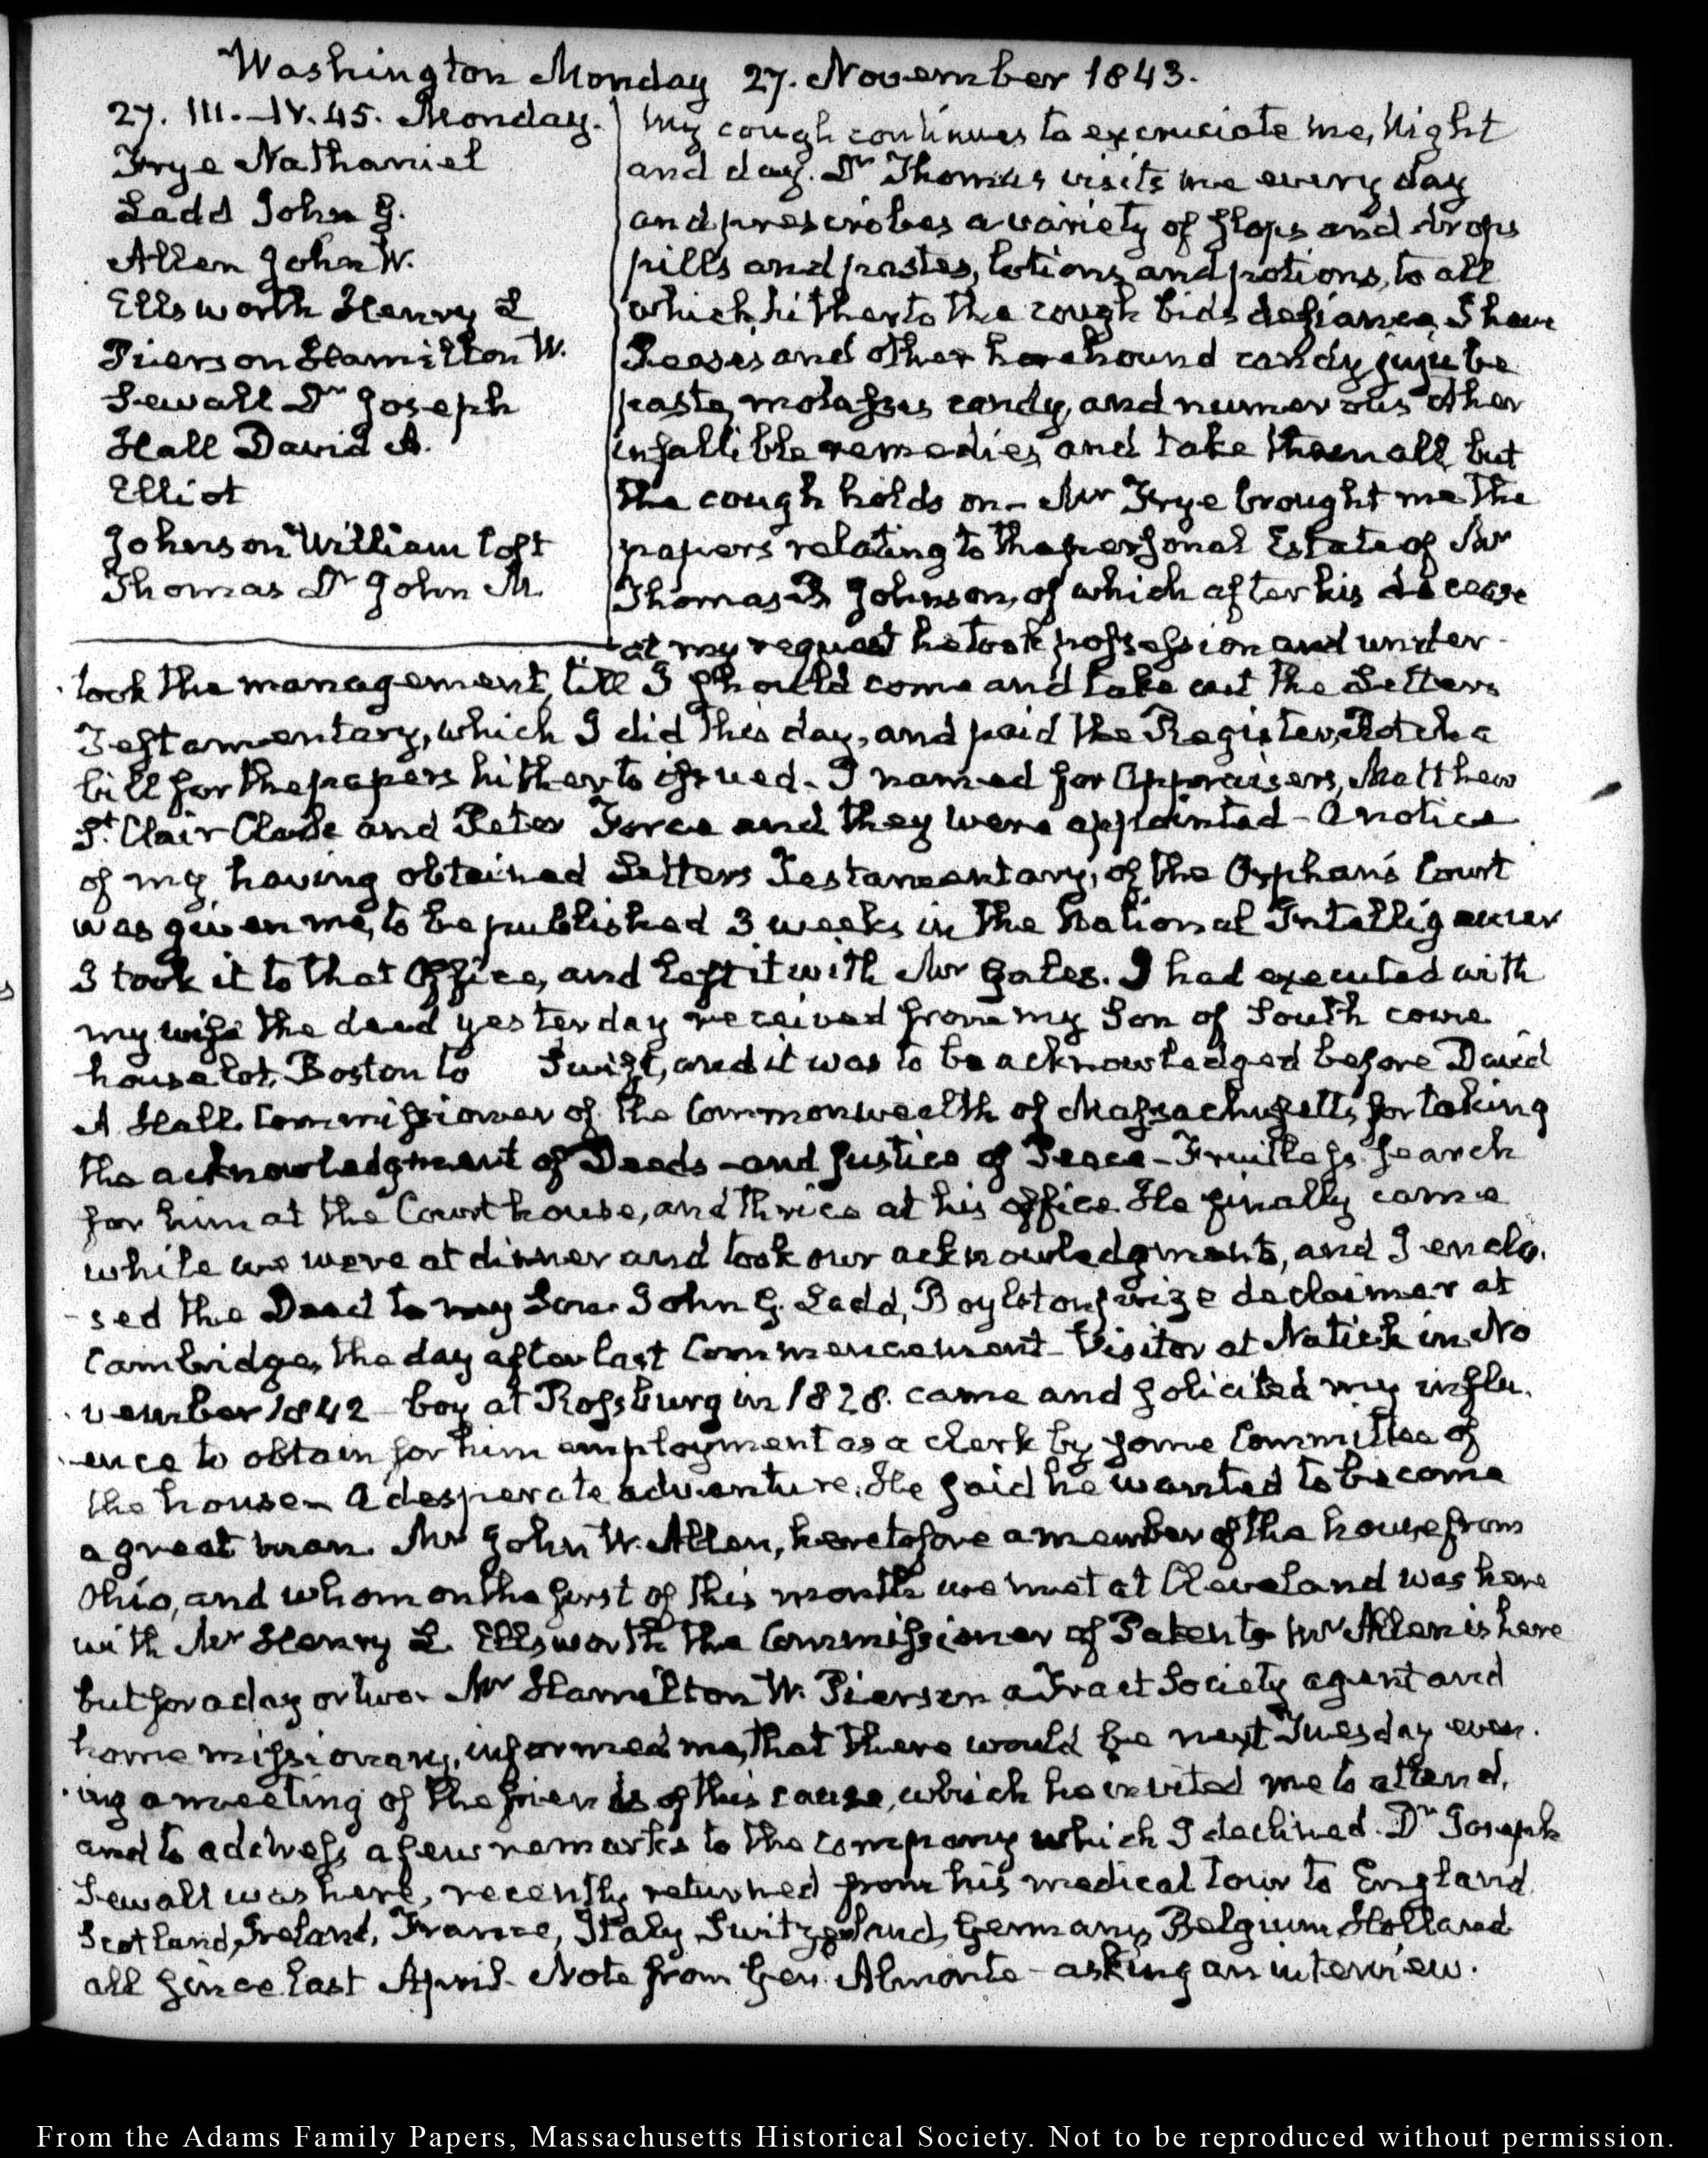 Washington Monday 27. November 1843.
27. III.–IV.45. Monday.
Frye Nathaniel
Ladd John G.
Allen John W.
Ellsworth Henry L
Pierson Hamilton W.
Sewall Dr Joseph
Hall David A.
Elliot
Johnson William Cost
Thomas Dr John M.
My cough continues to excruciate me, Night
and day. Dr Thomas visits me every day
and prescribes a variety of slops and drops
pills and pastes, lotions and potions, to all
which hitherto the cough bids defiance, I have
Pease's and other horehound candy, jujube
paste, molasses candy, and numerous other
infallible remedies, and take them all, but
the cough holds on – Mr Frye brought me the
papers relating to the personal Estate of Mr
Thomas B Johnson, of which after his decease
at my request he took possession and under-
took the management, till I should come and take out the Letters
Testamentary, which I did this day, and paid the Register, Rotch a
bill for the papers hitherto issued – I named for Appraisers, Matthew
St. Clair Clarke and Peter Force and they were appointed – A notice
of my having obtained Letters Testamentary, of the Orphan's Court
was given me, to be published 3 weeks in the National Intelligencer
I took it to that Office, and left it with Mr Gales. I had executed with
my wife the deed yesterday received from my Son of South cove
house lot, Boston to Swift, and it was to be acknowledged before David
A Hall Commissioner of the Commonwealth of Massachusetts for taking
the acknowledgment of Deeds – and Justice of Peace – Fruitless search
for him at the Court house, and thrice at his office. He finally came
while we were at dinner and took our acknowledgments, and I enclo-
-sed the Deed to my Son. John G. Ladd, Boylston prize declaimer at
Cambridge, the day after last Commencement – Visitor at Natick in No
vember 1842 – boy at Rossburg in 1828. came and solicited my influ-
-ence to obtain for him employment as a clerk by some Committee of
the house – A desperate adventure. He said he wanted to become
a great man. Mr John W. Allen, heretofore a member of the house from
Ohio, and whom on the first of this month we met at Cleveland was here
with Mr Henry L. Ellsworth the Commissioner of Patents – Mr Allen is here
but for a day or two. Mr Hamilton W. Pierson a Tract Society agent and
home missionary, informed me, that there would be next Tuesday even-
-ing a meeting of the friends of this cause, which he invited me to attend,
and to address a few remarks to the company which I declined. Dr Joseph
Sewall was here, recently returned from his medical tour to England
Scotland, Ireland, France, Italy Switzerland, Germany, Belgium Holland
all since last April – Note from Gen. Almonte – asking an interview.
From the Adams Family Papers, Massachusetts Historical Society. Not to be reproduced without permission.